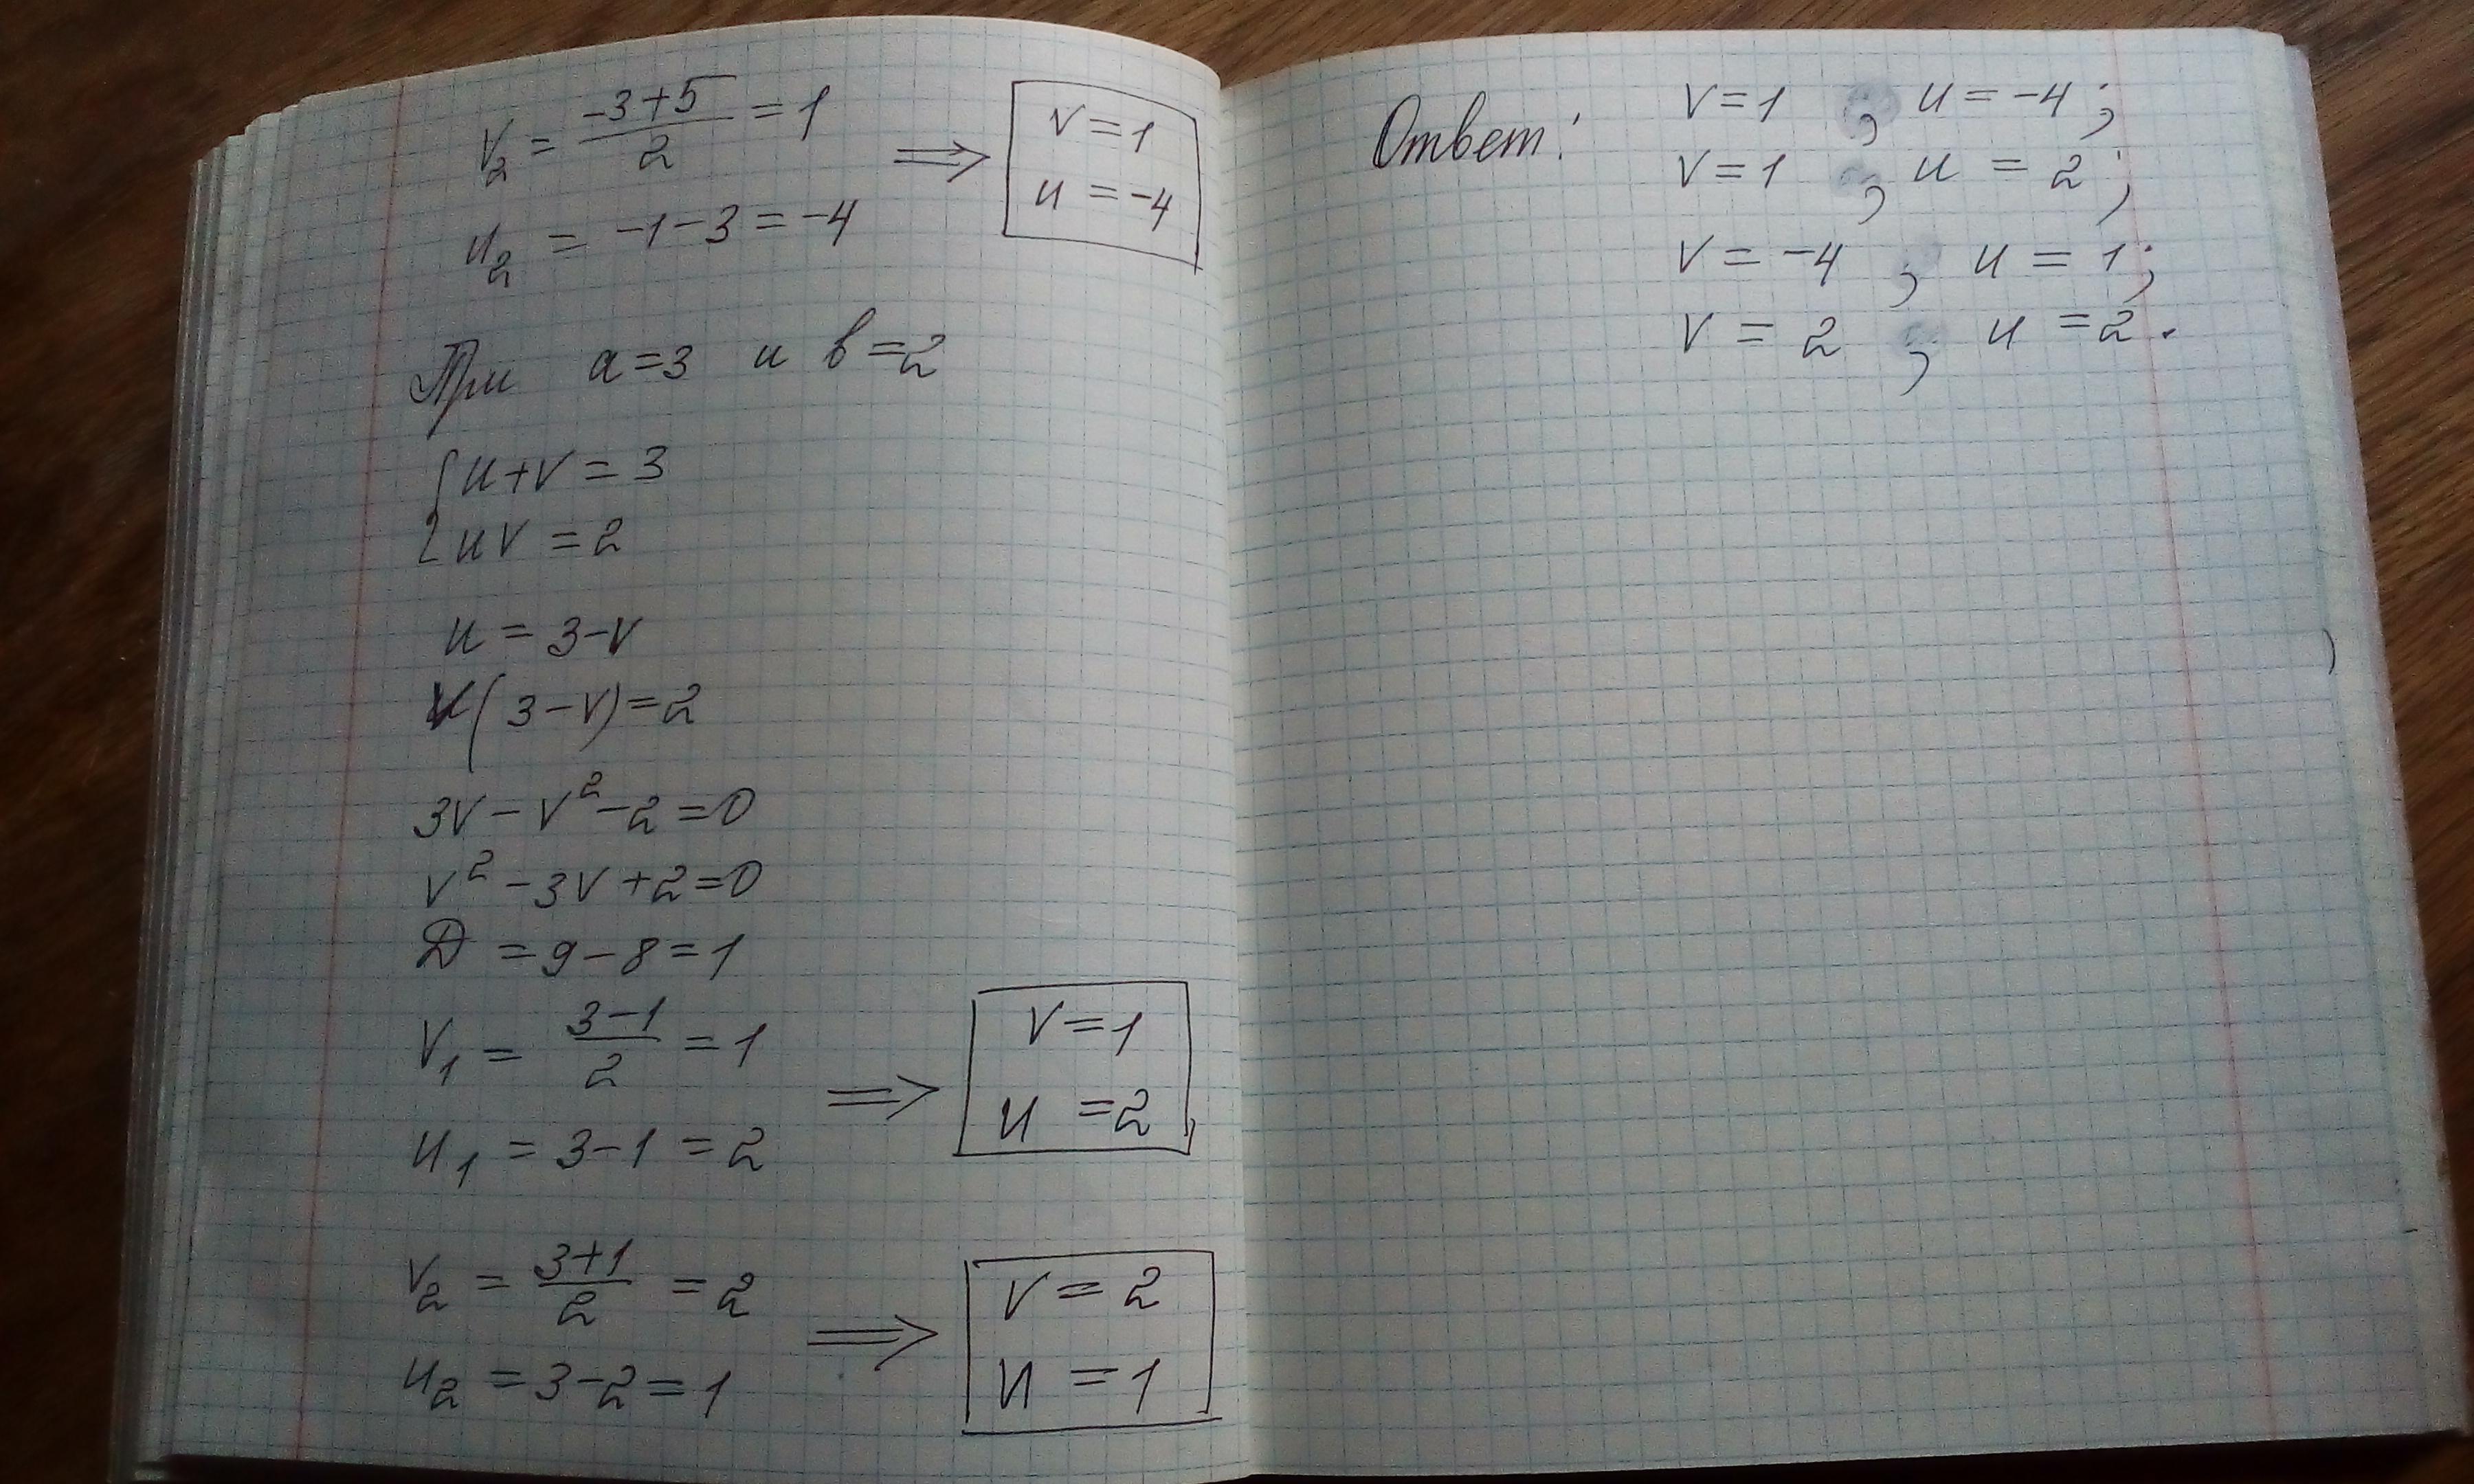 V₂ = (-3+5)/2 = 1 ⟹ V = 1
u₂ = -1-3 = -4 u = -4
При a=3 и в=2
{ u+v = 3
{ uv = 2
u = 3-v
V(3-v)=2
3v - v² - 2 = 0
v² - 3v + 2 = 0
Д = 9-8 = 1
V₁ = (3-1)/2 = 1 ⟹ V=1
u₁ = 3-1 = 2 u =2
V₂ = (3+1)/2 = 2 ⟹ V = 2
u₂ = 3-2 = 1 u = 1
Ответ: V=1 , u = -4;
V=1 , u = 2;
V = -4 , u = 1;
V = 2 , u = 2.